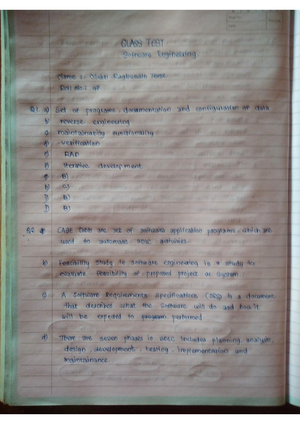 CLASS TEST
Software Engineering
Name :- Raghunath
Div no :-
Q1. a) Set of programs, documentation and configuration of data
b) reverse engineering
c) maintainability, functionality
d) verification
e) RAD
f) Iterative development
g)
h)
i)
j)
Q2. a) CASE tools are set of software application programs, which are
used to automate SDLC activities.
b) Feasibility Study in Software Engineering is a study to
evaluate feasibility of proposed project or system
c) A Software Requirements Specifications (SRS) is a document
that describes what the software will do and how it
will be expected to perform
d) There are seven phases in SDLC includes planning, analysis,
design, development, testing, implementation and
maintainance.